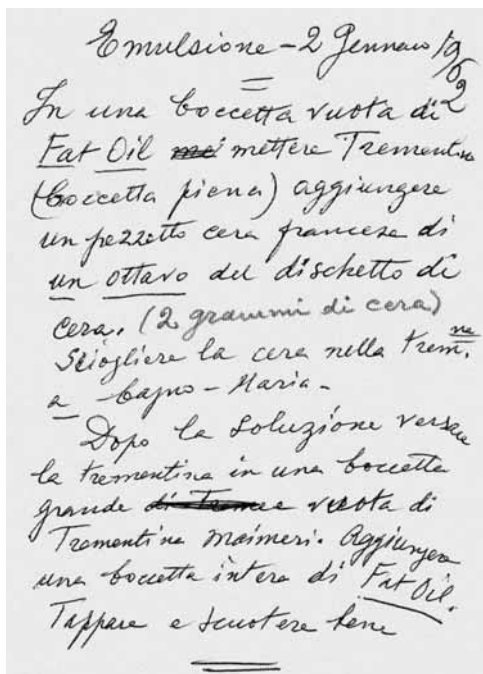 Emulsione - 2 Gennaio 1962
In una boccetta vuota di
Fat Oil mettere Trementina
(boccetta piena) aggiungere
un pezzetto cera francese di
un ottavo del dischetto di
cera. (2 grammi di cera)
Sciogliere la cera nella trem.na
a bagno-Maria -
Dopo la soluzione versare
la trementina in una boccetta
grande vuota di
Trementina Maimeri. Aggiungere
una boccetta intera di Fat Oil.
Tappare e scuotere bene